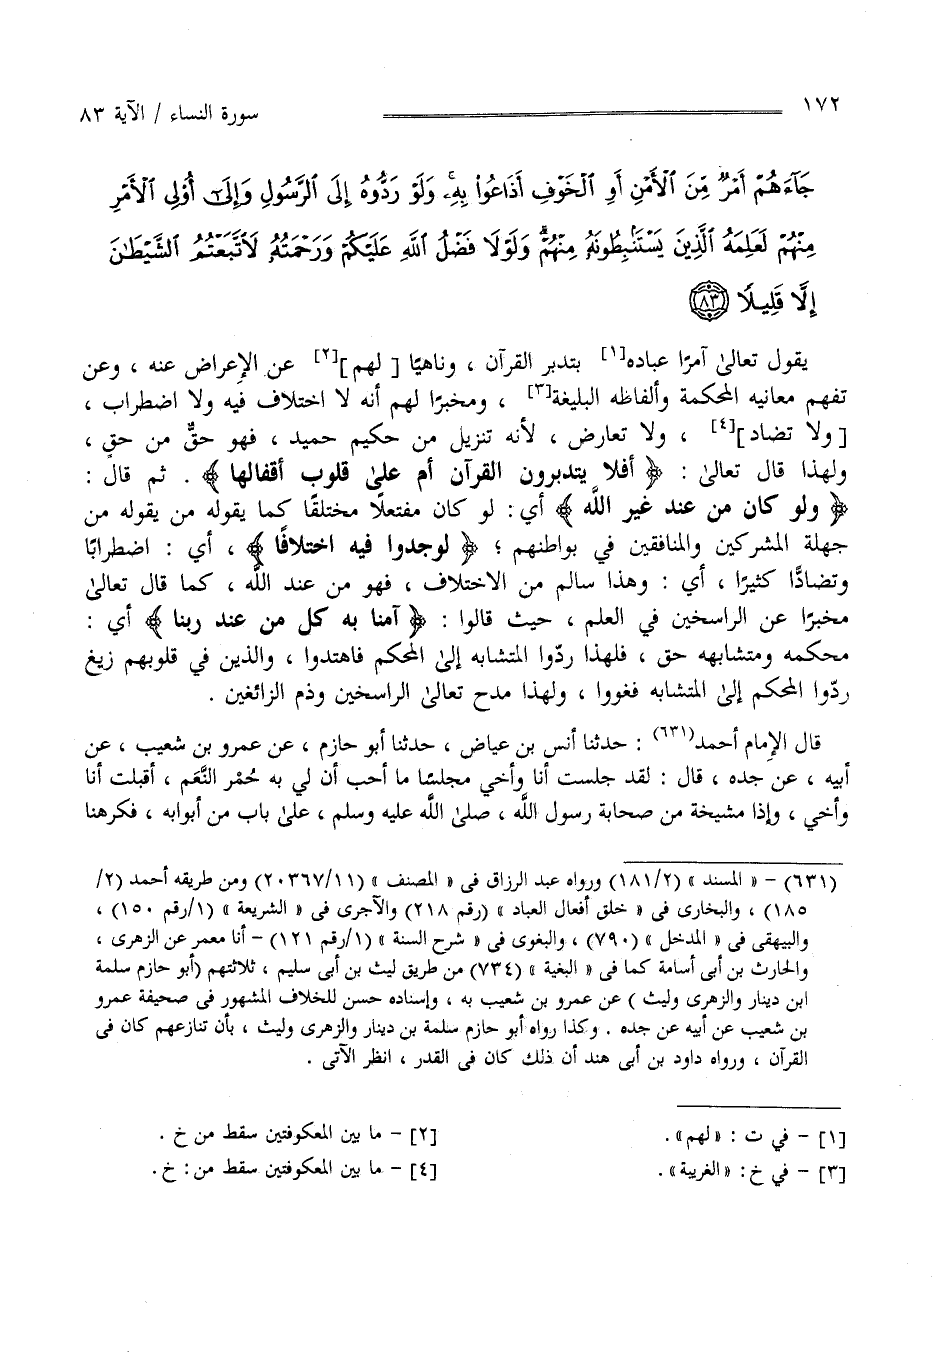 ١٧٢ سورة النساء / الآية ٨٣
جَآءَهُمْ أَمْرٌ مِّنَ ٱلْأَمْنِ أَوِ ٱلْخَوْفِ أَذَاعُوا۟ بِهِۦ وَلَوْ رَدُّوهُ إِلَى ٱلرَّسُولِ وَإِلَىٰٓ أُو۟لِى ٱلْأَمْرِ
مِنْهُمْ لَعَلِمَهُ ٱلَّذِينَ يَسْتَنۢبِطُونَهُۥ مِنْهُمْ وَلَوْلَا فَضْلُ ٱللَّهِ عَلَيْكُمْ وَرَحْمَتُهُۥ لَٱتَّبَعْتُمُ ٱلشَّيْطَٰنَ
إِلَّا قَلِيلًا ٨٣
يقول تعالىٰ آمرًا عباده[١] بتدبر القرآن ، وناهيًا [ لهم ][٢] عن الإِعراض عنه ، وعن
تفهم معانيه المحكمة وألفاظه البليغة[٣] ، ومخبرًا لهم أنه لا اختلاف فيه ولا اضطراب ،
[ ولا تضاد ][٤] ، ولا تعارض ، لأنه تنزيل من حكيم حميد ، فهو حقٌّ من حقٍ ،
ولهذا قال تعالىٰ : ﴿ أفلا يتدبرون القرآن أم علىٰ قلوب أقفالها ﴾ . ثم قال :
﴿ ولو كان من عند غير اللَّه ﴾ أي : لو كان مفتعلًا مختلقًا كما يقوله من يقوله من
جهلة المشركين والمنافقين في بواطنهم ؛ ﴿ لوجدوا فيه اختلافًا ﴾ ، أي : اضطرابًا
وتضادًّا كثيرًا ، أي : وهذا سالم من الاختلاف ، فهو من عند اللَّه ، كما قال تعالىٰ
مخبرًا عن الراسخين في العلم ، حيث قالوا : ﴿ آمنا به كل من عند ربنا ﴾ أي :
محكمه ومتشابهه حق ، فلهذا ردّوا المتشابه إلىٰ المحكم فاهتدوا ، والذين في قلوبهم زيغ
ردّوا المحكم إلىٰ المتشابه فغووا ، ولهذا مدح تعالىٰ الراسخين وذم الزائغين .
قال الإِمام أحمد(٦٣١) : حدثنا أنس بن عياض ، حدثنا أبو حازم ، عن عمرو بن شعيب ، عن
أبيه ، عن جده ، قال : لقد جلست أنا وأخي مجلسًا ما أحب أن لي به حُمْر النَّعَم ، أقبلت أنا
وأخي ، وإذا مشيخة من صحابة رسول اللَّه ، صلىٰ اللَّه عليه وسلم ، علىٰ باب من أبوابه ، فكرهنا
(٦٣١) – « المسند » (١٨١/٢) ورواه عبد الرزاق فى « المصنف » (٢٠٣٦٧/١١) ومن طريقه أحمد (٢/
١٨٥) ، والبخارى فى « خلق أفعال العباد » (رقم ٢١٨) والآجرى فى « الشريعة » (١/رقم ١٥٠) ،
والبيهقى فى « المدخل » (٧٩٠) ، والبغوى فى « شرح السنة » (١/رقم ١٢١) – أنا معمر عن الزهرى ،
والحارث بن أبى أسامة كما فى « البغية » (٧٣٤) من طريق ليث بن أبى سليم ، ثلاثتهم (أبو حازم سلمة
ابن دينار والزهرى وليث ) عن عمرو بن شعيب به ، وإسناده حسن للخلاف المشهور فى صحيفة عمرو
بن شعيب عن أبيه عن جده . وكذا رواه أبو حازم سلمة بن دينار والزهرى وليث ، بأن تنازعهم كان فى
القرآن ، ورواه داود بن أبى هند أن ذلك كان فى القدر ، انظر الآتى .
[١] – في ت : «لهم». [٢] – ما بين المعكوفتين سقط من خ .
[٣] – في خ : «الغريبة». [٤] – ما بين المعكوفتين سقط من : خ .